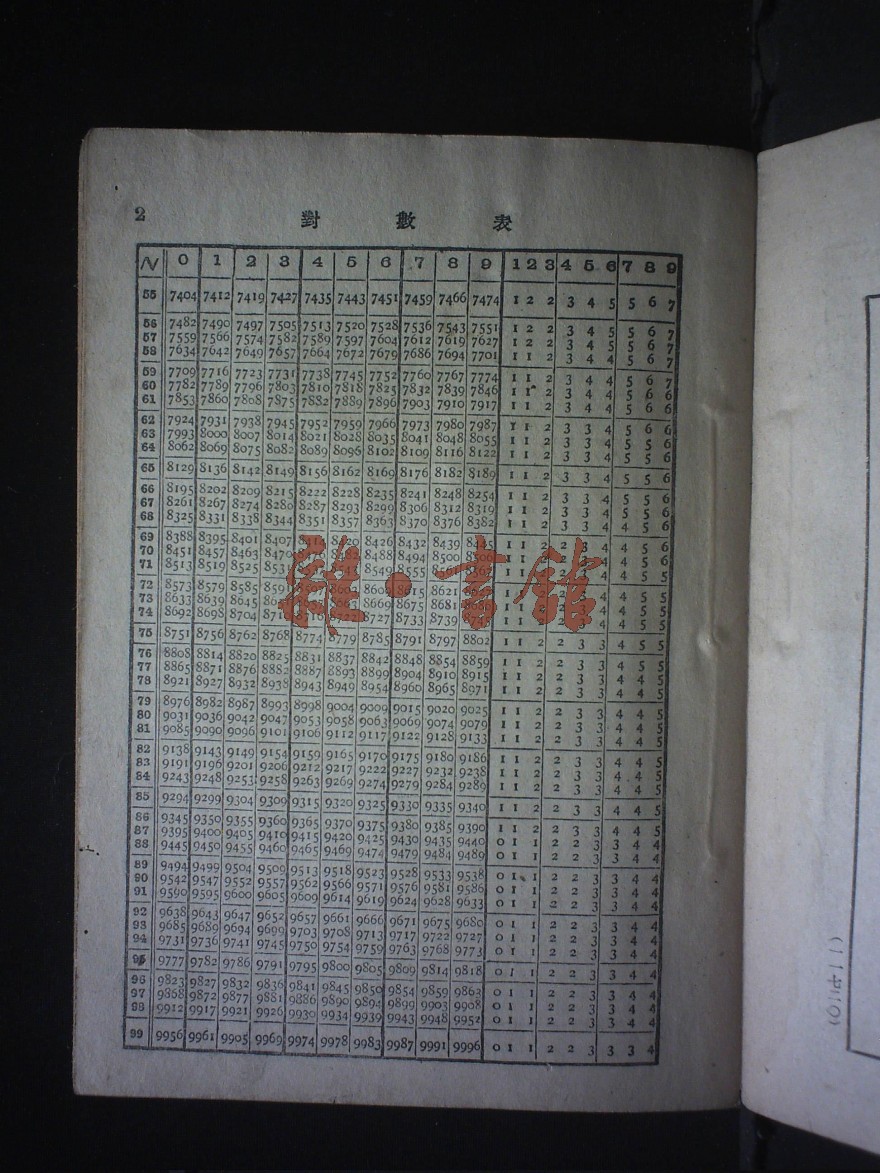 2
對 數 表
N 0 1 2 3 4 5 6 7 8 9 1 2 3 4 5 6 7 8 9
55 7404 7412 7419 7427 7435 7443 7451 7459 7466 7474 1 2 2 3 4 5 5 6 7
56 7482 7490 7497 7505 7513 7520 7528 7536 7543 7551 1 2 2 3 4 5 5 6 7
57 7559 7566 7574 7582 7589 7597 7604 7612 7619 7627 1 2 2 3 4 5 5 6 7
58 7634 7642 7649 7657 7664 7672 7679 7686 7694 7701 1 1 2 3 4 4 5 6 7
59 7709 7716 7723 7731 7738 7745 7752 7760 7767 7774 1 1 2 3 4 4 5 6 7
60 7782 7789 7796 7803 7810 7818 7825 7832 7839 7846 1 1 2 3 4 4 5 6 6
61 7853 7860 7808 7875 7882 7889 7896 7903 7910 7917 1 1 2 3 4 4 5 6 6
62 7924 7931 7938 7945 7952 7959 7966 7973 7980 7987 1 1 2 3 3 4 5 6 6
63 7993 8000 8007 8014 8021 8028 8035 8041 8048 8055 1 1 2 3 3 4 5 5 6
64 8062 8069 8075 8082 8089 8096 8102 8109 8116 8122 1 1 2 3 3 4 5 5 6
65 8129 8136 8142 8149 8156 8162 8169 8176 8182 8189 1 1 2 3 3 4 5 5 6
66 8195 8202 8209 8215 8222 8228 8235 8241 8248 8254 1 1 2 3 3 4 5 5 6
67 8261 8267 8274 8280 8287 8293 8299 8306 8312 8319 1 1 2 3 3 4 5 5 6
68 8325 8331 8338 8344 8351 8357 8363 8370 8376 8382 1 1 2 3 3 4 4 5 6
69 8388 8395 8401 8407 8426 8432 8439 8445 1 1 2 2 3 4 4 5 6
70 8451 8457 8463 8470 8488 8494 8500 8506 1 1 2 2 3 4 4 5 6
71 8513 8519 8525 8531 8549 8555 8567 1 1 2 2 3 4 4 5 5
72 8573 8579 8585 8591 8609 8615 8621 1 1 2 2 3 4 4 5 5
73 8633 8639 8645 8669 8675 8681 8686 1 1 2 2 3 4 4 5 5
74 8692 8698 8704 8710 8716 8722 8727 8733 8739 1 1 2 2 3 4 4 5 5
75 8751 8756 8762 8768 8774 8779 8785 8791 8797 8802 1 1 2 2 3 3 4 5 5
76 8808 8814 8820 8825 8831 8837 8842 8848 8854 8859 1 1 2 2 3 3 4 5 5
77 8865 8871 8876 8882 8887 8893 8899 8904 8910 8915 1 1 2 2 3 3 4 4 5
78 8921 8927 8932 8938 8943 8949 8954 8960 8965 8971 1 1 2 2 3 3 4 4 5
79 8976 8982 8987 8993 8998 9004 9009 9015 9020 9025 1 1 2 2 3 3 4 4 5
80 9031 9036 9042 9047 9053 9058 9063 9069 9074 9079 1 1 2 2 3 3 4 4 5
81 9085 9090 9096 9101 9106 9112 9117 9122 9128 9133 1 1 2 2 3 3 4 4 5
82 9138 9143 9149 9154 9159 9165 9170 9175 9180 9186 1 1 2 2 3 3 4 4 5
83 9191 9196 9201 9206 9212 9217 9222 9227 9232 9238 1 1 2 2 3 3 4 4 5
84 9243 9248 9253 9258 9263 9269 9274 9279 9284 9289 1 1 2 2 3 3 4 4 5
85 9294 9299 9304 9309 9315 9320 9325 9330 9335 9340 1 1 2 2 3 3 4 4 5
86 9345 9350 9355 9360 9365 9370 9375 9380 9385 9390 1 1 2 2 3 3 4 4 5
87 9395 9400 9405 9410 9415 9420 9425 9430 9435 9440 0 1 1 2 2 3 3 4 4
88 9445 9450 9455 9460 9465 9469 9474 9479 9484 9489 0 1 1 2 2 3 3 4 4
89 9494 9499 9504 9509 9513 9518 9523 9528 9533 9538 0 1 1 2 2 3 3 4 4
90 9542 9547 9552 9557 9562 9566 9571 9576 9581 9586 0 1 1 2 2 3 3 4 4
91 9590 9595 9600 9605 9609 9614 9619 9624 9628 9633 0 1 1 2 2 3 3 4 4
92 9638 9643 9647 9652 9657 9661 9666 9671 9675 9680 0 1 1 2 2 3 3 4 4
93 9685 9689 9694 9699 9703 9708 9713 9717 9722 9727 0 1 1 2 2 3 3 4 4
94 9731 9736 9741 9745 9750 9754 9759 9763 9768 9773 0 1 1 2 2 3 3 4 4
95 9777 9782 9786 9791 9795 9800 9805 9809 9814 9818 0 1 1 2 2 3 3 4 4
96 9823 9827 9832 9836 9841 9845 9850 9854 9859 9862 0 1 1 2 2 3 3 4 4
97 9868 9872 9877 9881 9886 9890 9894 9899 9903 9908 0 1 1 2 2 3 3 4 4
98 9912 9917 9921 9926 9930 9934 9939 9943 9948 9952 0 1 1 2 2 3 3 4 4
99 9956 9961 9905 9969 9974 9978 9983 9987 9991 9996 0 1 1 2 2 3 3 3 4
雜·書館